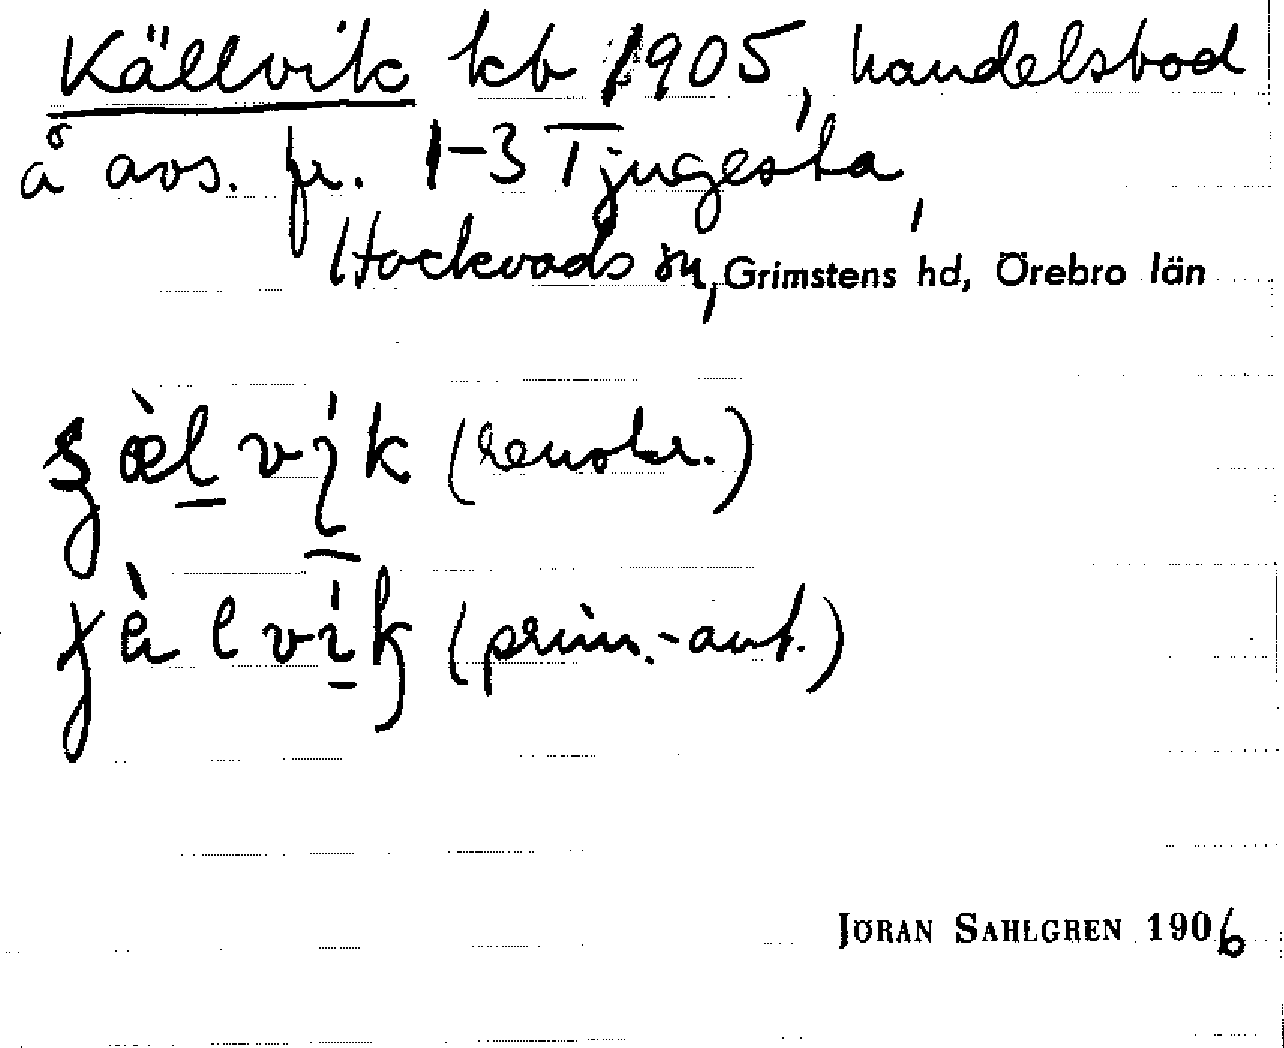 Källvik kb 1905, handelsbod
å avs. fr. 1-3 Tjugesta,
Hackvads sn, Grimstens hd, Örebro län
(renskr.)
(prim.-ant.)
JÖRAN SAHLGREN 1906